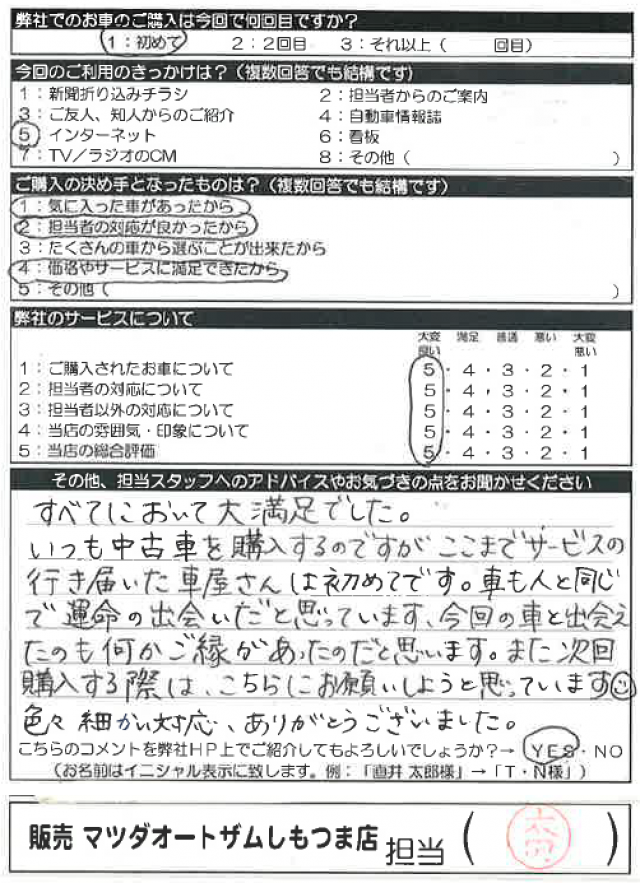 弊社でのお車のご購入は今回で何回目ですか？
1：初めて　2：2回目　3：それ以上（　　回目）
今回のご利用のきっかけは？（複数回答でも結構です）
1：新聞折り込みチラシ　2：担当者からのご案内
3：ご友人、知人からのご紹介　4：自動車情報誌
5：インターネット　6：看板
7：TV／ラジオのCM　8：その他（　　）
ご購入の決め手となったものは？（複数回答でも結構です）
1：気に入った車があったから
2：担当者の対応が良かったから
3：たくさんの車から選ぶことが出来たから
4：価格やサービスに満足できたから
5：その他（　　）
弊社のサービスについて
大変良い　満足　普通　悪い　大変悪い
1：ご購入されたお車について　5・4・3・2・1
2：担当者の対応について　5・4・3・2・1
3：担当者以外の対応について　5・4・3・2・1
4：当店の雰囲気・印象について　5・4・3・2・1
5：当店の総合評価　5・4・3・2・1
その他、担当スタッフへのアドバイスやお気づきの点をお聞かせください
すべてにおいて大満足でした。
いつも中古車を購入するのですがここまでサービスの
行き届いた車屋さんは初めてです。車も人と同じ
で運命の出会いだと思っています、今回の車と出会え
たのも何かご縁があったのだと思います。また次回
購入する際は、こちらにお願いしようと思っています☺
色々細かい対応、ありがとうございました。
こちらのコメントを弊社HP上でご紹介してもよろしいでしょうか？→ YES・NO
（お名前はイニシャル表示に致します。例：「直井 太郎様」→「T・N様」）
販売 マツダオートザムしもつま店 担当（　　）